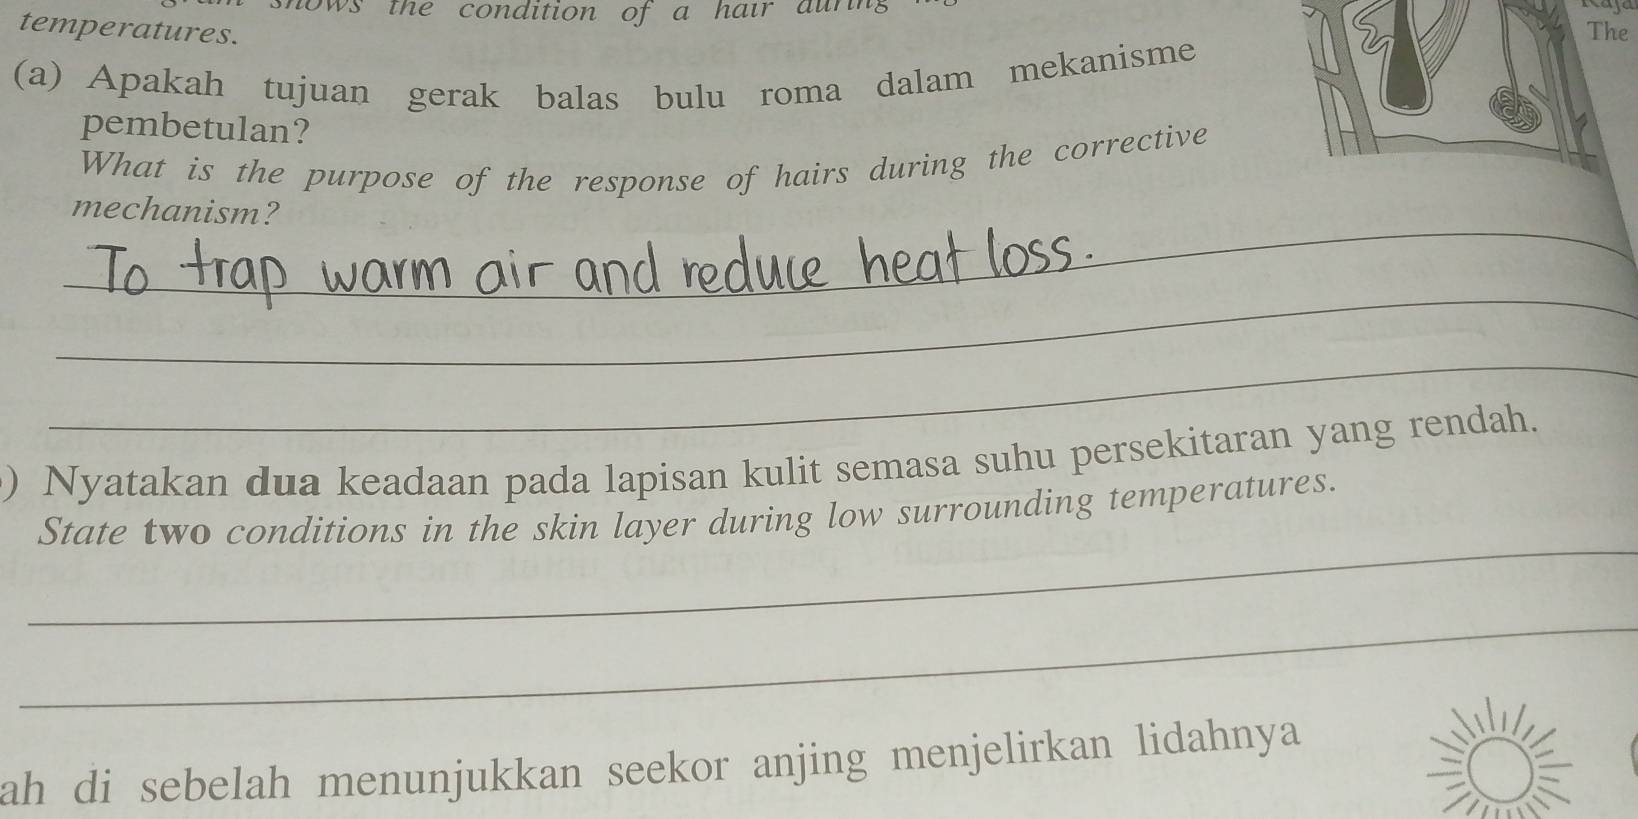 shows the condition of a hair during
temperatures.
The
(a) Apakah tujuan gerak balas bulu roma dalam mekanisme
pembetulan?
What is the purpose of the response of hairs during the corrective
mechanism?
To trap warm air and reduce heat loss.
) Nyatakan dua keadaan pada lapisan kulit semasa suhu persekitaran yang rendah.
State two conditions in the skin layer during low surrounding temperatures.
ah di sebelah menunjukkan seekor anjing menjelirkan lidahnya